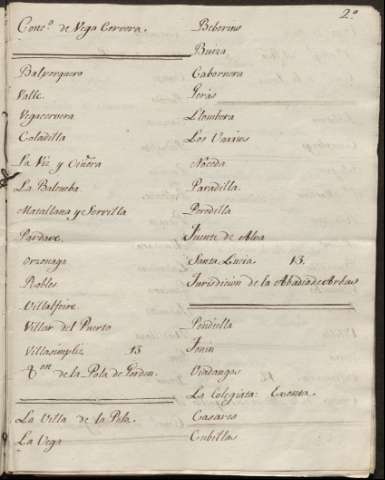 2.º
Conc.º de Vega Cervera.
Balverquero
Valle
Vegacervera
Coladilla
La Viz y Ciñera
La Balomba
Matallana y Serrilla
Pardave
Orzonaga
Robles
Villalfeire
Villar del Puerto
Villasimpliz 13
de la Pola de Gordon
La Villa de la Pola.
La Vega
Beberino
Buiza
Cabornera
Jerás
Llombera
Los Varrios
Noceda
Paradilla
Peredilla
Fuente de Alva
Santa Lucia 13.
Jurisdicion de la Abadia de Arbas
Pendilla
Tonin
Viadangos
La Colegiata: Exenta.
Casares
Cubillas